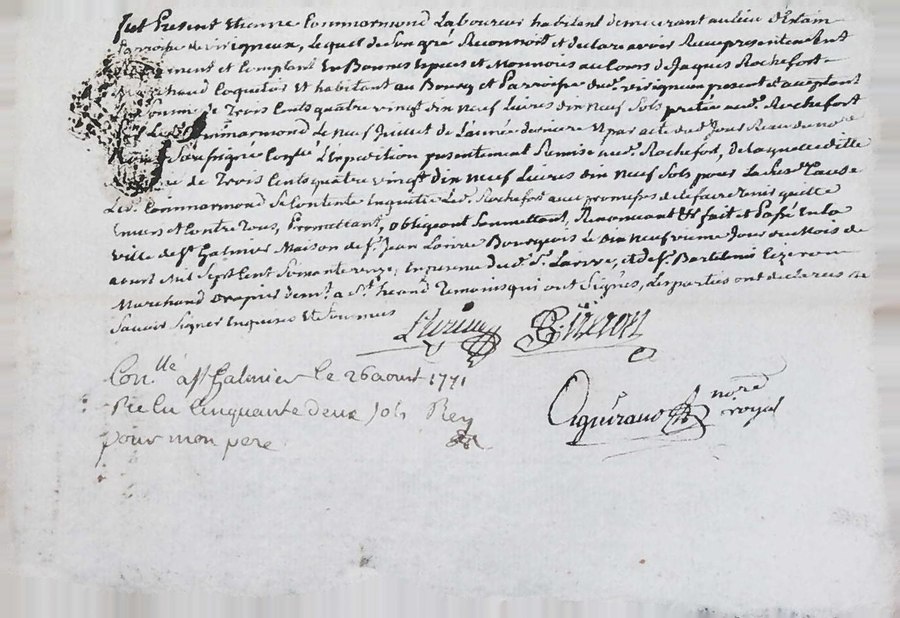 fut Present Etienne Commarmond Laboureur habitant demeurant au lieu
Parroisse de virigneux, Lequel de Son gré Reconnoit et declare avoir Receu presentement
et Comptant En Bonnes Especes et Monnoies au Cours de Jaques Rochefort
Marchand Coquetier Et habitant au Bourg et Parroisse dud. virigneux present et acceptant
Somme de Trois Cents quatre vingt dix neuf Livres dix neuf Sols pretée aud. Rochefort
Commarmond Le neuf Juillet de L'année derniere Et par acte dud. Jour Receu du not.re
Royal Soussigné Controllé L'Expedition presentement Remise aud. Rochefort, de Laquelle ditte
de Trois Cents quatre vingt dix neuf Livres dix neuf Sols pour La dite Cause
Led. Commarmond Se Contente En quitte Led. Rochefort aux promesses de Le faire tenir quitte
Envers et Contre Tous, Promettant, obligeant Soumettant, Renonceant &c fait et Passé En La
ville de St. Galmier Maison de Sr. Jean Larive Bourgeois Le dix neufvieme Jour du Mois de
aoust Mil Sept Cent Soixante onze, En presence dud. Sr. Larive, et de Sr. Bartelemi
Marchand drapier dem.t a St. heand Temoins qui ont Signés, Les parties ont declarées ne
Savoir Signer Enquises Et Sommées
Con.llé a St. Galmier le 26 aout 1771
Re lu Cinquante deux Sols Rey
pour mon pere
not.re
royal